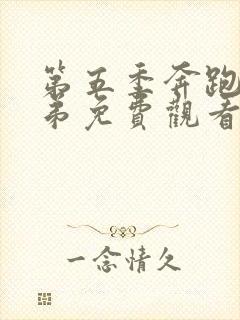 第五季奔跑
弟免費觀看
一念情久